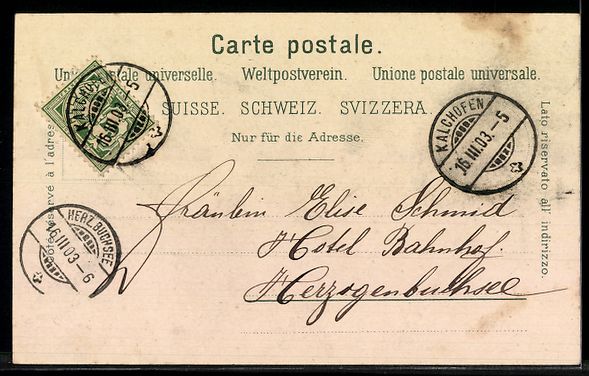 Carte postale.
Union postale universelle. Weltpostverein. Unione postale universale.
SUISSE. SCHWEIZ. SVIZZERA.
Nur für die Adresse.
Côté réservé à l'adresse
Lato riservato all' indirizzo.
KALCHOFEN
16.III.03.-5
KALCHOFEN
16.III.03.-5
HERZ.BUCHSEE
16.III.03.-6
Fräulein Elise Schmid
Hotel Bahnhof
Herzogenbuchsee